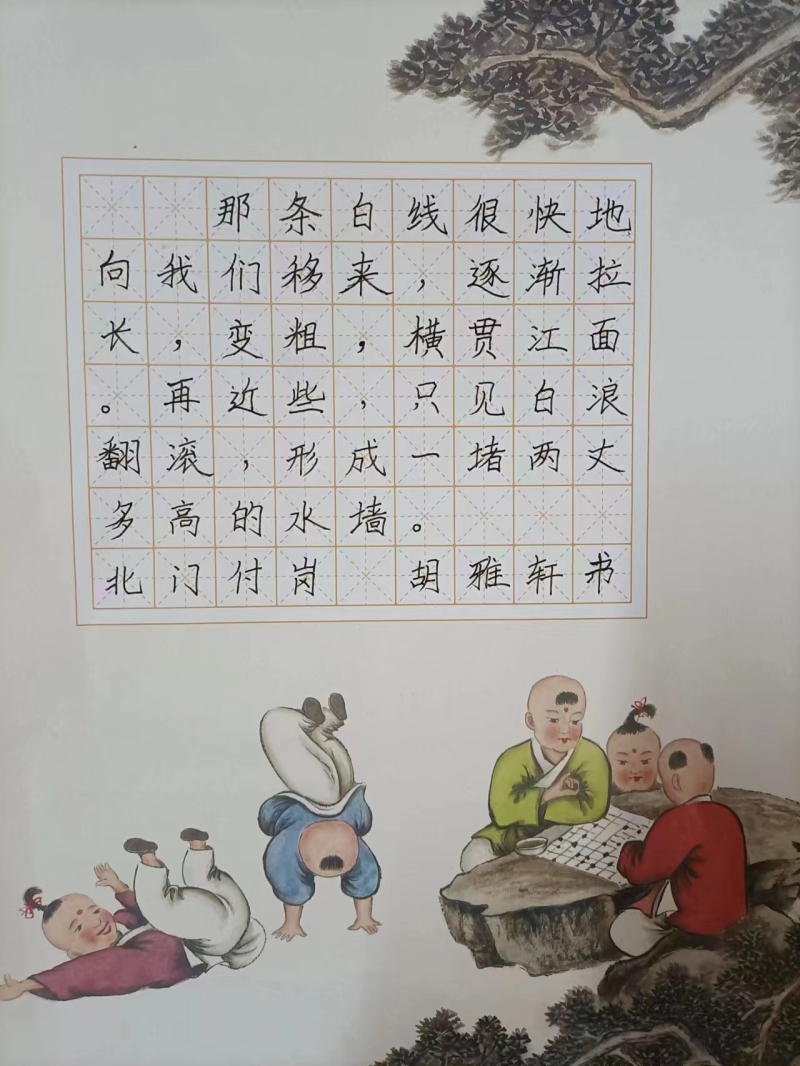 那条白线很快地
向我们移来，逐渐拉
长，变粗，横贯江面
。再近些，只见白浪
翻滚，形成一堵两丈
多高的水墙。
北门付岗 胡雅轩书